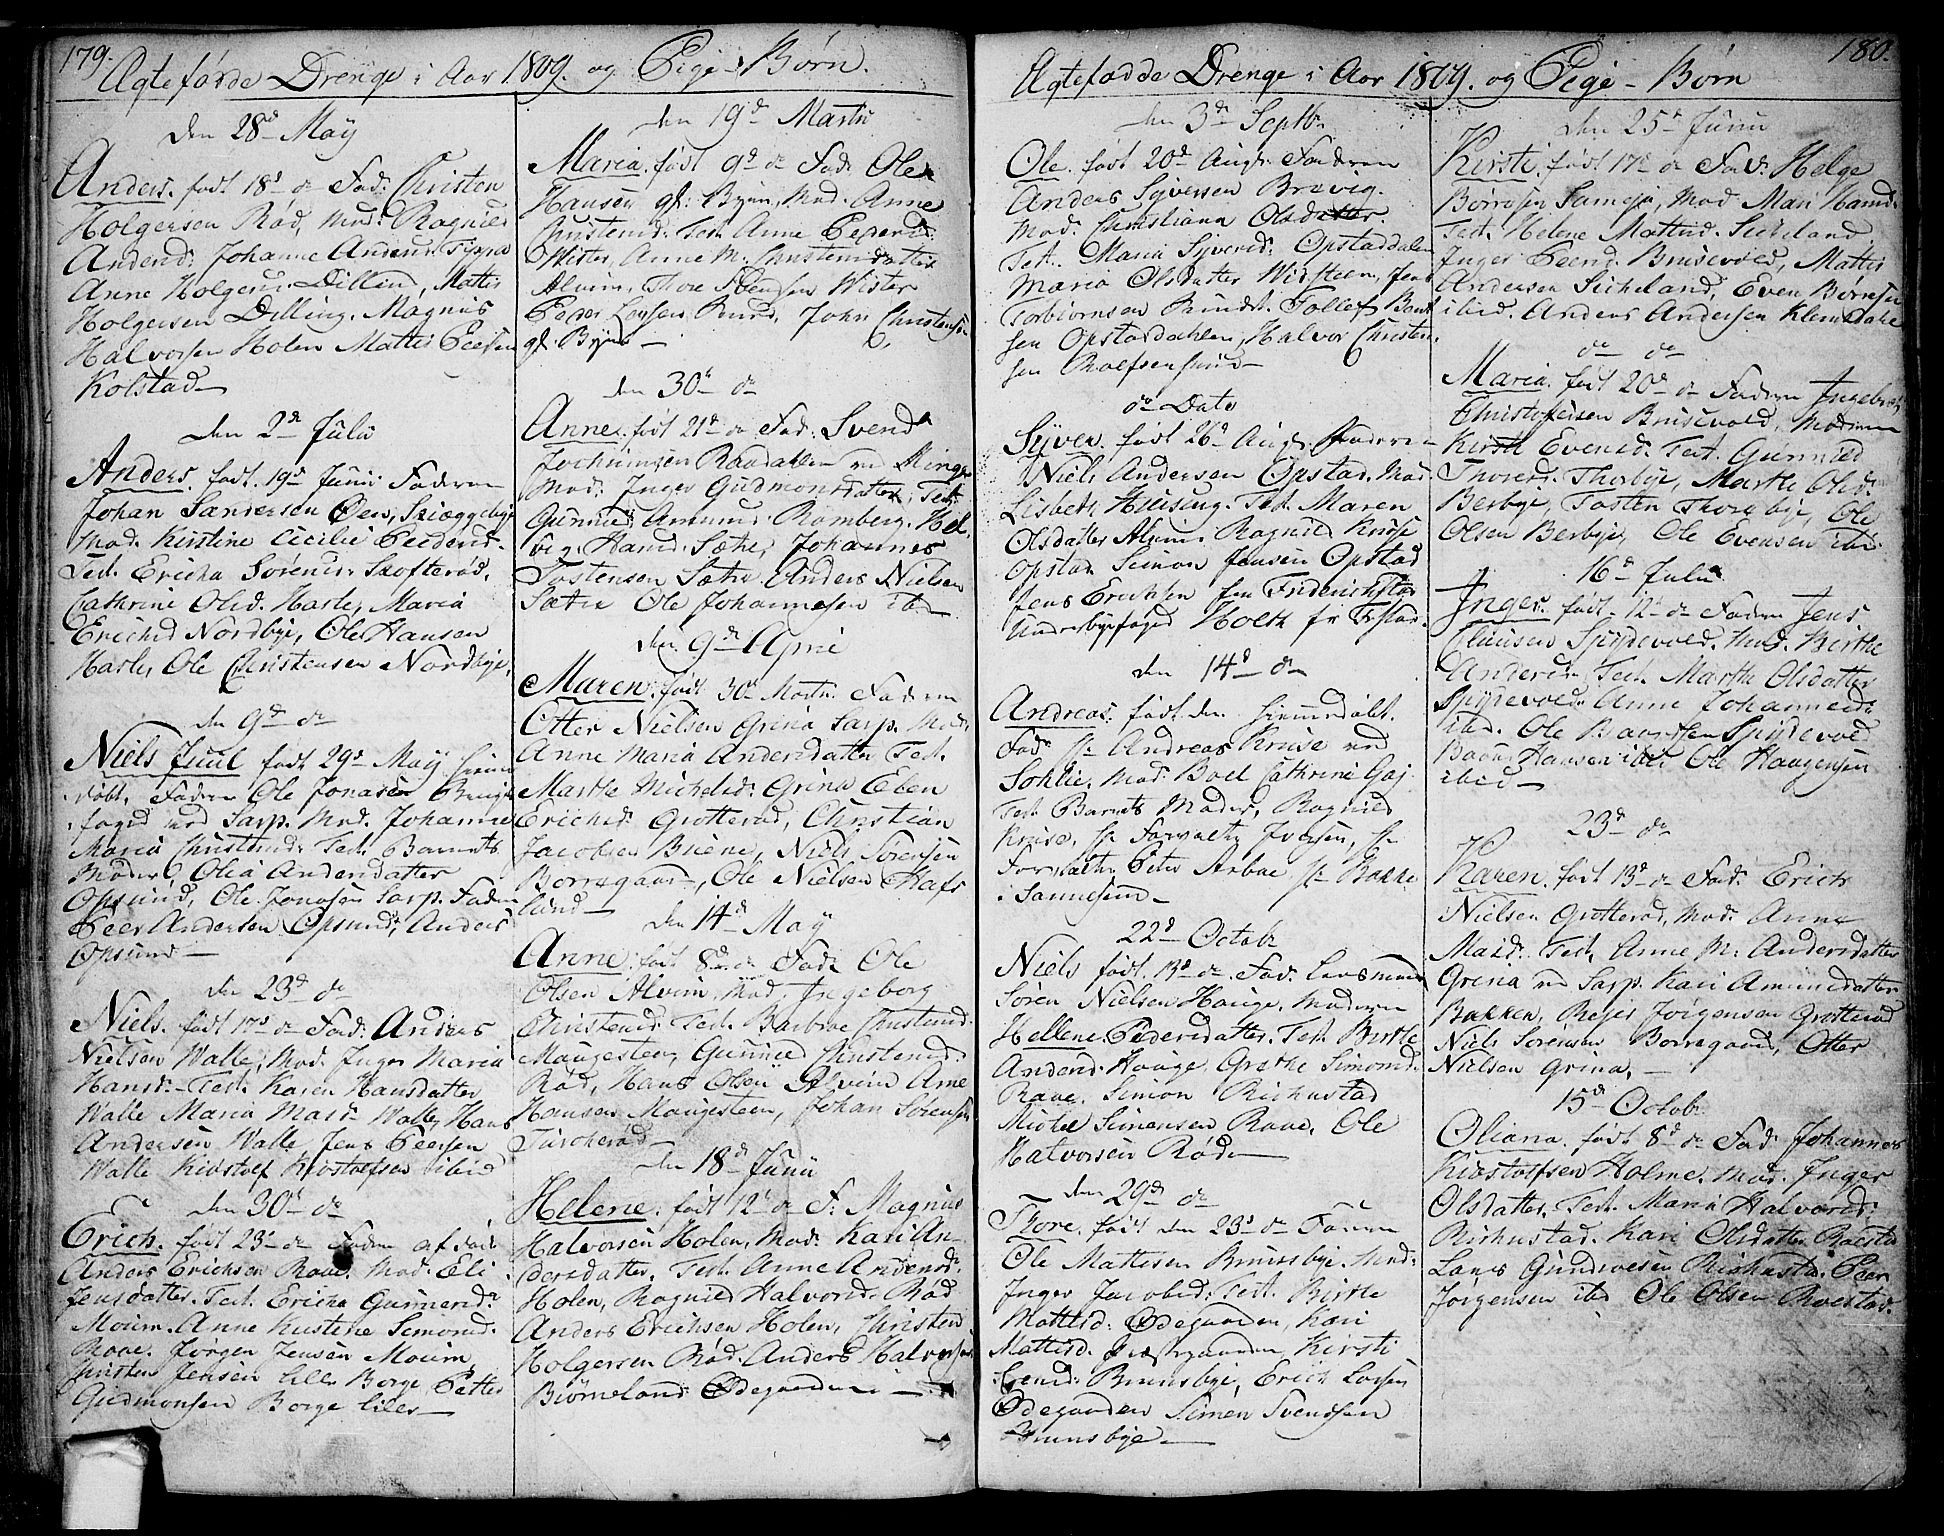 179.
Ægtefødde Drenge i Aar 1809. og Pige-Børn.
den 28d May
Anders. født 18d do Fad: Christen
Holgersen Rød, Mod: Ragnild
Andersd: Johanne Andersd:
Anne Holgersd: Dilling, Mattis
Holgersen Dilling. Magnus
Halvorsen Holen Mattis Peersen
Kolstad
den 2d Julii
Anders. født 19d Junii Faderen
Johan Sandersen Øen, Skiæggebye
Mod. Kirstine Cicilie Pedersd.
Test. Ericha Sørensd: Skofterød,
Cathrine Olsd. Hasle, Maria
Erichsd Nordbye, Ole Hansen
Hasle, Ole Christensen Nordbye,
den 9d do
Niels Juul født 29d May
døbt, Faderen Ole Jonasen
foged ved Sarp. Mod. Johanne
Maria Christensd: Test. Barnets
Moder, Olia Andersdatter
Opsund, Ole Jonasen Sarp. Faderen
Peer Andersen Opsund, Anders
Opsund
den 23d do
Niels. født 17d do Fad: Anders
Nielsen Walle, Mod. Inger Maria
Hansd: Test. Karen Hansdatter
Walle Maria Madsd. Walle, Hans
Andersen Walle Jens Peersen
Walle Kirstof Kirstofsen ibid
den 30d do
Erich. født 23d do Faderen
Anders Erichsen Raae. Mod. Eli
Jensdatter. Test. Ericha Gunnersd:
Moum. Anne Kirstine Simonsd:
Raae. Jørgen Jensen Moum,
Christen Jensen Lille Borge, Petter
Gudmonsen Borge Lille
den 19d Martii
Maria. født 9d do Fad: Ole
Hansen gl: Byen, Mod. Anne
Christensd: Test. Anne Pedersd:
Wister, Anne M. Christensdatter
Alvim, Thore Svensen Wister
Peder Larsen Ruud, John Christens:
gl. Byen
den 30d do
Anne. født 21d do Fad: Svend
Jochumsen Raadahlen ved Minge
Mod: Inger Gudmonsdatter, Test:
Gunnild Amunsd: Romberg, Hel
vig Hansd: Sætre, Johannes
Tostensen Sætre Anders Nielsen
Sætre Ole Johannesen ibid
den 9d April
Maren. født 30d Martii Faderen
Otter Nielsen Grina Sarp. Mod:
Anne Maria Andersdatter Test.
Marthe Michelsd: Grina Eben
Erichsd: Grotterød, Christian
Jacobsen Buene, Niels Sørensen
Borregaard, Ole Nielsen Hafs
lund
den 14d May
Anne. født 8d do Fad: Ole
Olsen Alvim, Mod. Ingeborg
Christensd: Test. Barbroe Christensd:
Maugesteen, Gunnild Christensd:
Rød, Hans Olsen Alvim Arne
Hansen Maugesteen, Johan Sørensen
Torcherød
den 18d Junii
Helene. født 12d do F: Magnus
Halvorsen Holen, Mod: Kari An-
dersdatter. Test. Anne Andersd:
Holen, Ragnild Halvorsd. Rød
Anders Erichsen Holen, Christen
Holgersen Rød. Anders Halvorsen
Biørneland Ødegaarden
180.
Ægtefødde Drenge i Aar 1809. og Pige-Børn
den 3d Septb.
Ole. født 20d Aug: Faderen
Anders Syversen Brevig.
Mod: Christiana Olsdatter.
Test. Maria Syversd: Opstaddalen
Maria Olsdatter Widsteen, Jens
Torbiørnsen Rundt. Tollef Bent
sen Opstaddahlen, Halvor Christen
sen Roelfsensund
do Dato
Syver. født 26d Aug: Faderen
Niels Andersen Opstad. Mod.
Lisbeth Heising. Test. Maren
Olsdatter Alvim Ragnild Kruse
Opstad Simon Jensen Opstad
Jens Erichsen fra Friderichstad
Underbyefoged Holth fr. Frstad.
den 14d do
Andreas. født den hiemmedøbt.
Fad: Hr Andreas Kruse ved
Sohlie. Mod: Boel Cathrine Gaj
Test. Barnets Moder, Ragnild
Kruse, Hr Forvalter Iversen, Hr
Forvalter Peter Arboe Hr Bakke
i Sannesund
22d Octob:
Niels født 13d do Fad: Lensmand
Søren Nielsen Hauge, Moderen
Hellene Pedersdatter. Test. Birthe
Andersd: Hauge, Grethe Simonsd:
Raae. Simon Richustad
Michel Simensen Raae, Ole
Halvorsen Røds
den 29d do
Thore. født den 23d do Faderen
Ole Mattisen Brunsbye, Mod:
Inger Jacobsd: Test. Birthe
Mattisd. Ødegaarden, Kari
Mattisd. Præstegaarden, Kirsti
Svensd: Brunsbye, Erich Larsen
Ødegaarden Simen Svendsen
Brunsbye
den 25d Junii
Kirsti. født 17d do Fad: Helge
Børresen Sameja, Mod Mari Hansd:
Test. Helene Mattisd. Sicheland,
Inger Peersd: Brusevold, Mattis
Andersen Sicheland, Even Børresen
ibid. Anders Andersen Klemsdahl
do do
Maria. født 20d do Faderen Ingebret
Christophersen Brusevold, Moderen
Kirsti Evensd. Test. Gunnild
Thoresd: Thorbye, Marthe Olsd:
Berbye, Tosten Thorebye, Ole
Olsen Berbye, Ole Evensen ibid.
16d Julii
Inger. født 12d do Faderen Jens
Clausen Spydevold, Mod. Birthe
Andersd: Test. Marthe Olsdatter
Spydevold Anne Johannesd:
ibd. Ole Baardsen Spydevold
Baard Hansen ibid Ole Haagensen
ibid
23d do
Karen. født 13d do Fad: Erich
Nielsen Grotterød, Mod. Anne
Madsd: Test. Anne M: Andersdatter
Grina ved Sarp. Kari Amundsdatter
Bakken, Rejer Jørgensen Grotterød
Niels Sørensen Borregaard, Otter
Nielsen Grina.
15d Octob:
Oliana. født 8d do Fad: Johannes
Kirstoffsen Holme. Mod. Inger
Olsdatter. Test. Maria Halvorsd:
Richustad. Kari Olsdatter Roestad
Lars Gundersen Richustad. Peer
Jørgensen ibd Ole Olsen Roestad.